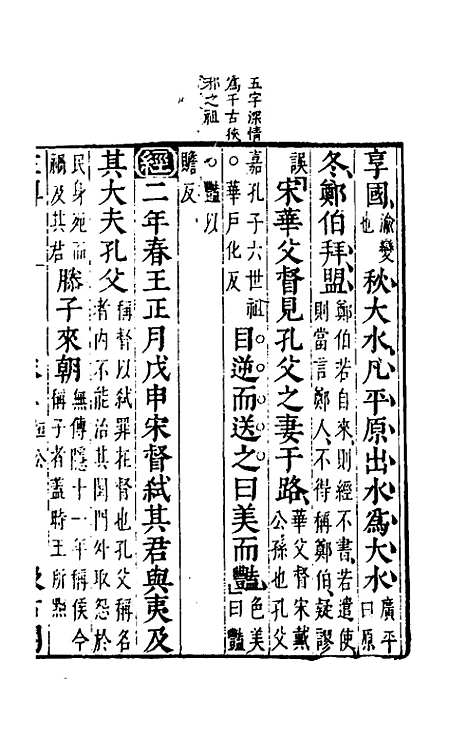 五字深情
為千古俠
邪之祖
享國渝變也秋大水凡平原出水為大水廣平曰原
冬鄭伯拜盟鄭伯若自來則經不書若遣使則當言鄭人不得稱鄭伯疑謬
誤宋華父督見孔父之妻于路華父督宋戴公孫也孔父
嘉孔子六世祖○華戶化反目逆而送之曰美而豔色美曰豔
○豔以贍反
經二年春王正月戊申宋督弒其君與夷及
其大夫孔父稱督以弒罪在督也孔父稱名者內不能治其閨門外取怨於
民身死而禍及其君滕子來朝無傳隱十一年稱侯今稱子者蓋時王所黜